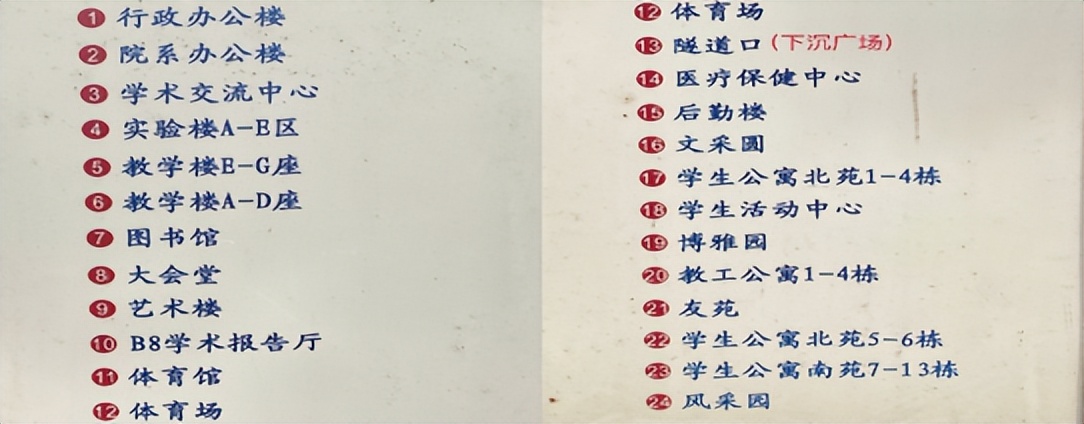 1 行政办公楼
2 院系办公楼
3 学术交流中心
4 实验楼A-E区
5 教学楼E-G座
6 教学楼A-D座
7 图书馆
8 大会堂
9 艺术楼
10 B8学术报告厅
11 体育馆
12 体育场
12 体育场
13 隧道口(下沉广场)
14 医疗保健中心
15 后勤楼
16 文采圆
17 学生公寓北苑1-4栋
18 学生活动中心
19 博雅园
20 教工公寓1-4栋
21 友苑
22 学生公寓北苑5-6栋
23 学生公寓南苑7-13栋
24 风采园